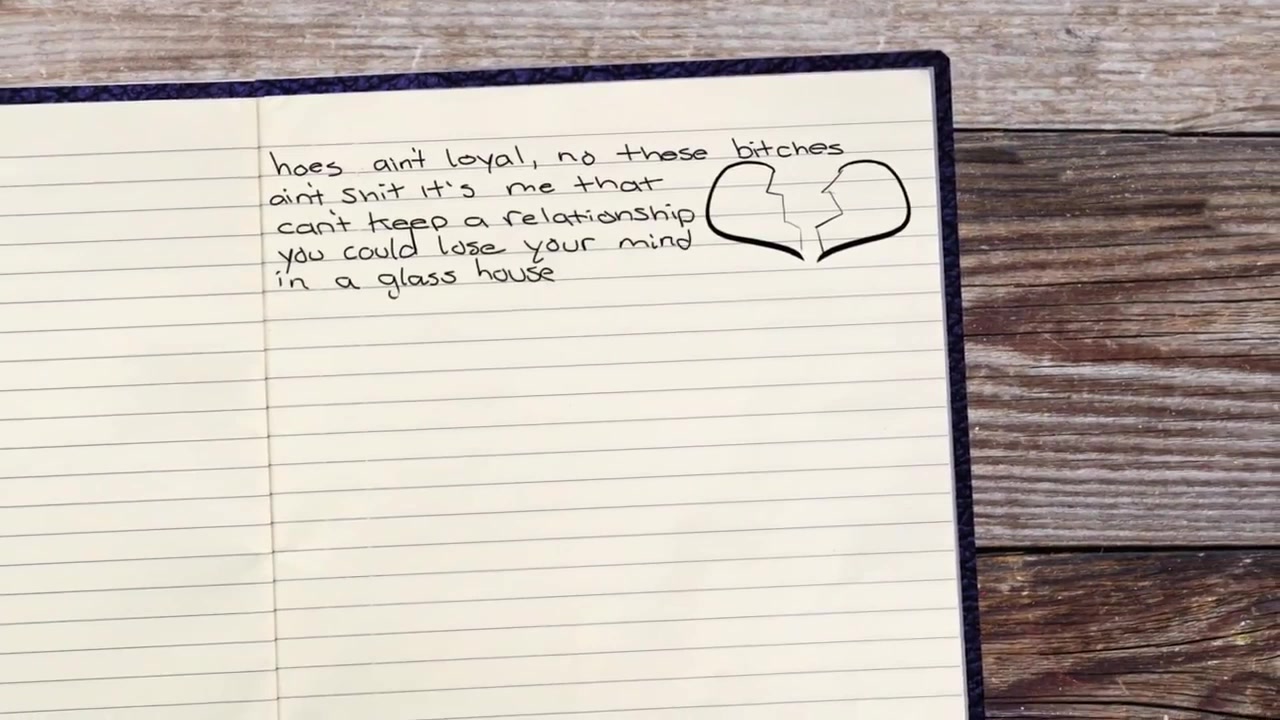 hoes ain't loyal, no these bitches
ain't shit it's me that
can't keep a relationship
you could lose your mind
in a glass house